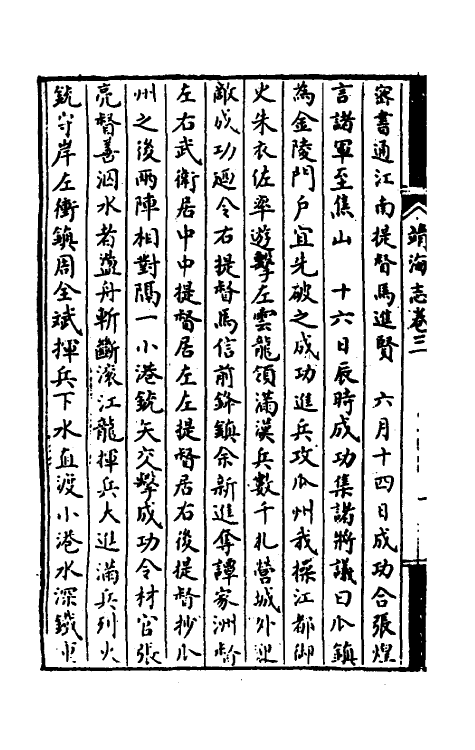 靖海志卷三
一
密書通江南提督馬進賢　六月十四日成功合張煌
言諸軍至焦山　十六日辰時成功集諸將議曰瓜鎮
為金陵門戶宜先破之成功進兵攻瓜州我操江都御
火朱衣佐率遊擊左雲龍領滿漢兵數千札營城外迎
敵成功廵令右提督馬信前鋒鎮余新進奪譚家洲督
左右武衛居中中提督居左左提督居右後提督抄瓜
州之後兩陣相對隔一小港銃矢交擊成功令材官張
亮督善泅水者盪舟斬斷滚江龍揮兵大進滿兵列火
銃守岸左衝鎮周全斌揮兵下水直渡小港水深鐵